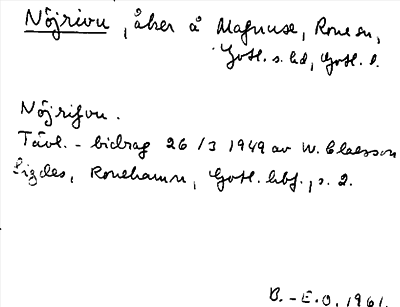 Nöjrivu, åker å Magnuse, Rone sn,
Gotl. s. hd, Gotl. l.
Nöjrifvu.
Tävl.-bidrag 26/3 1949 av W. Claesson
Sigdes, Ronehamn, Gotl. hbf., s. 2.
B.-E.O. 1961.